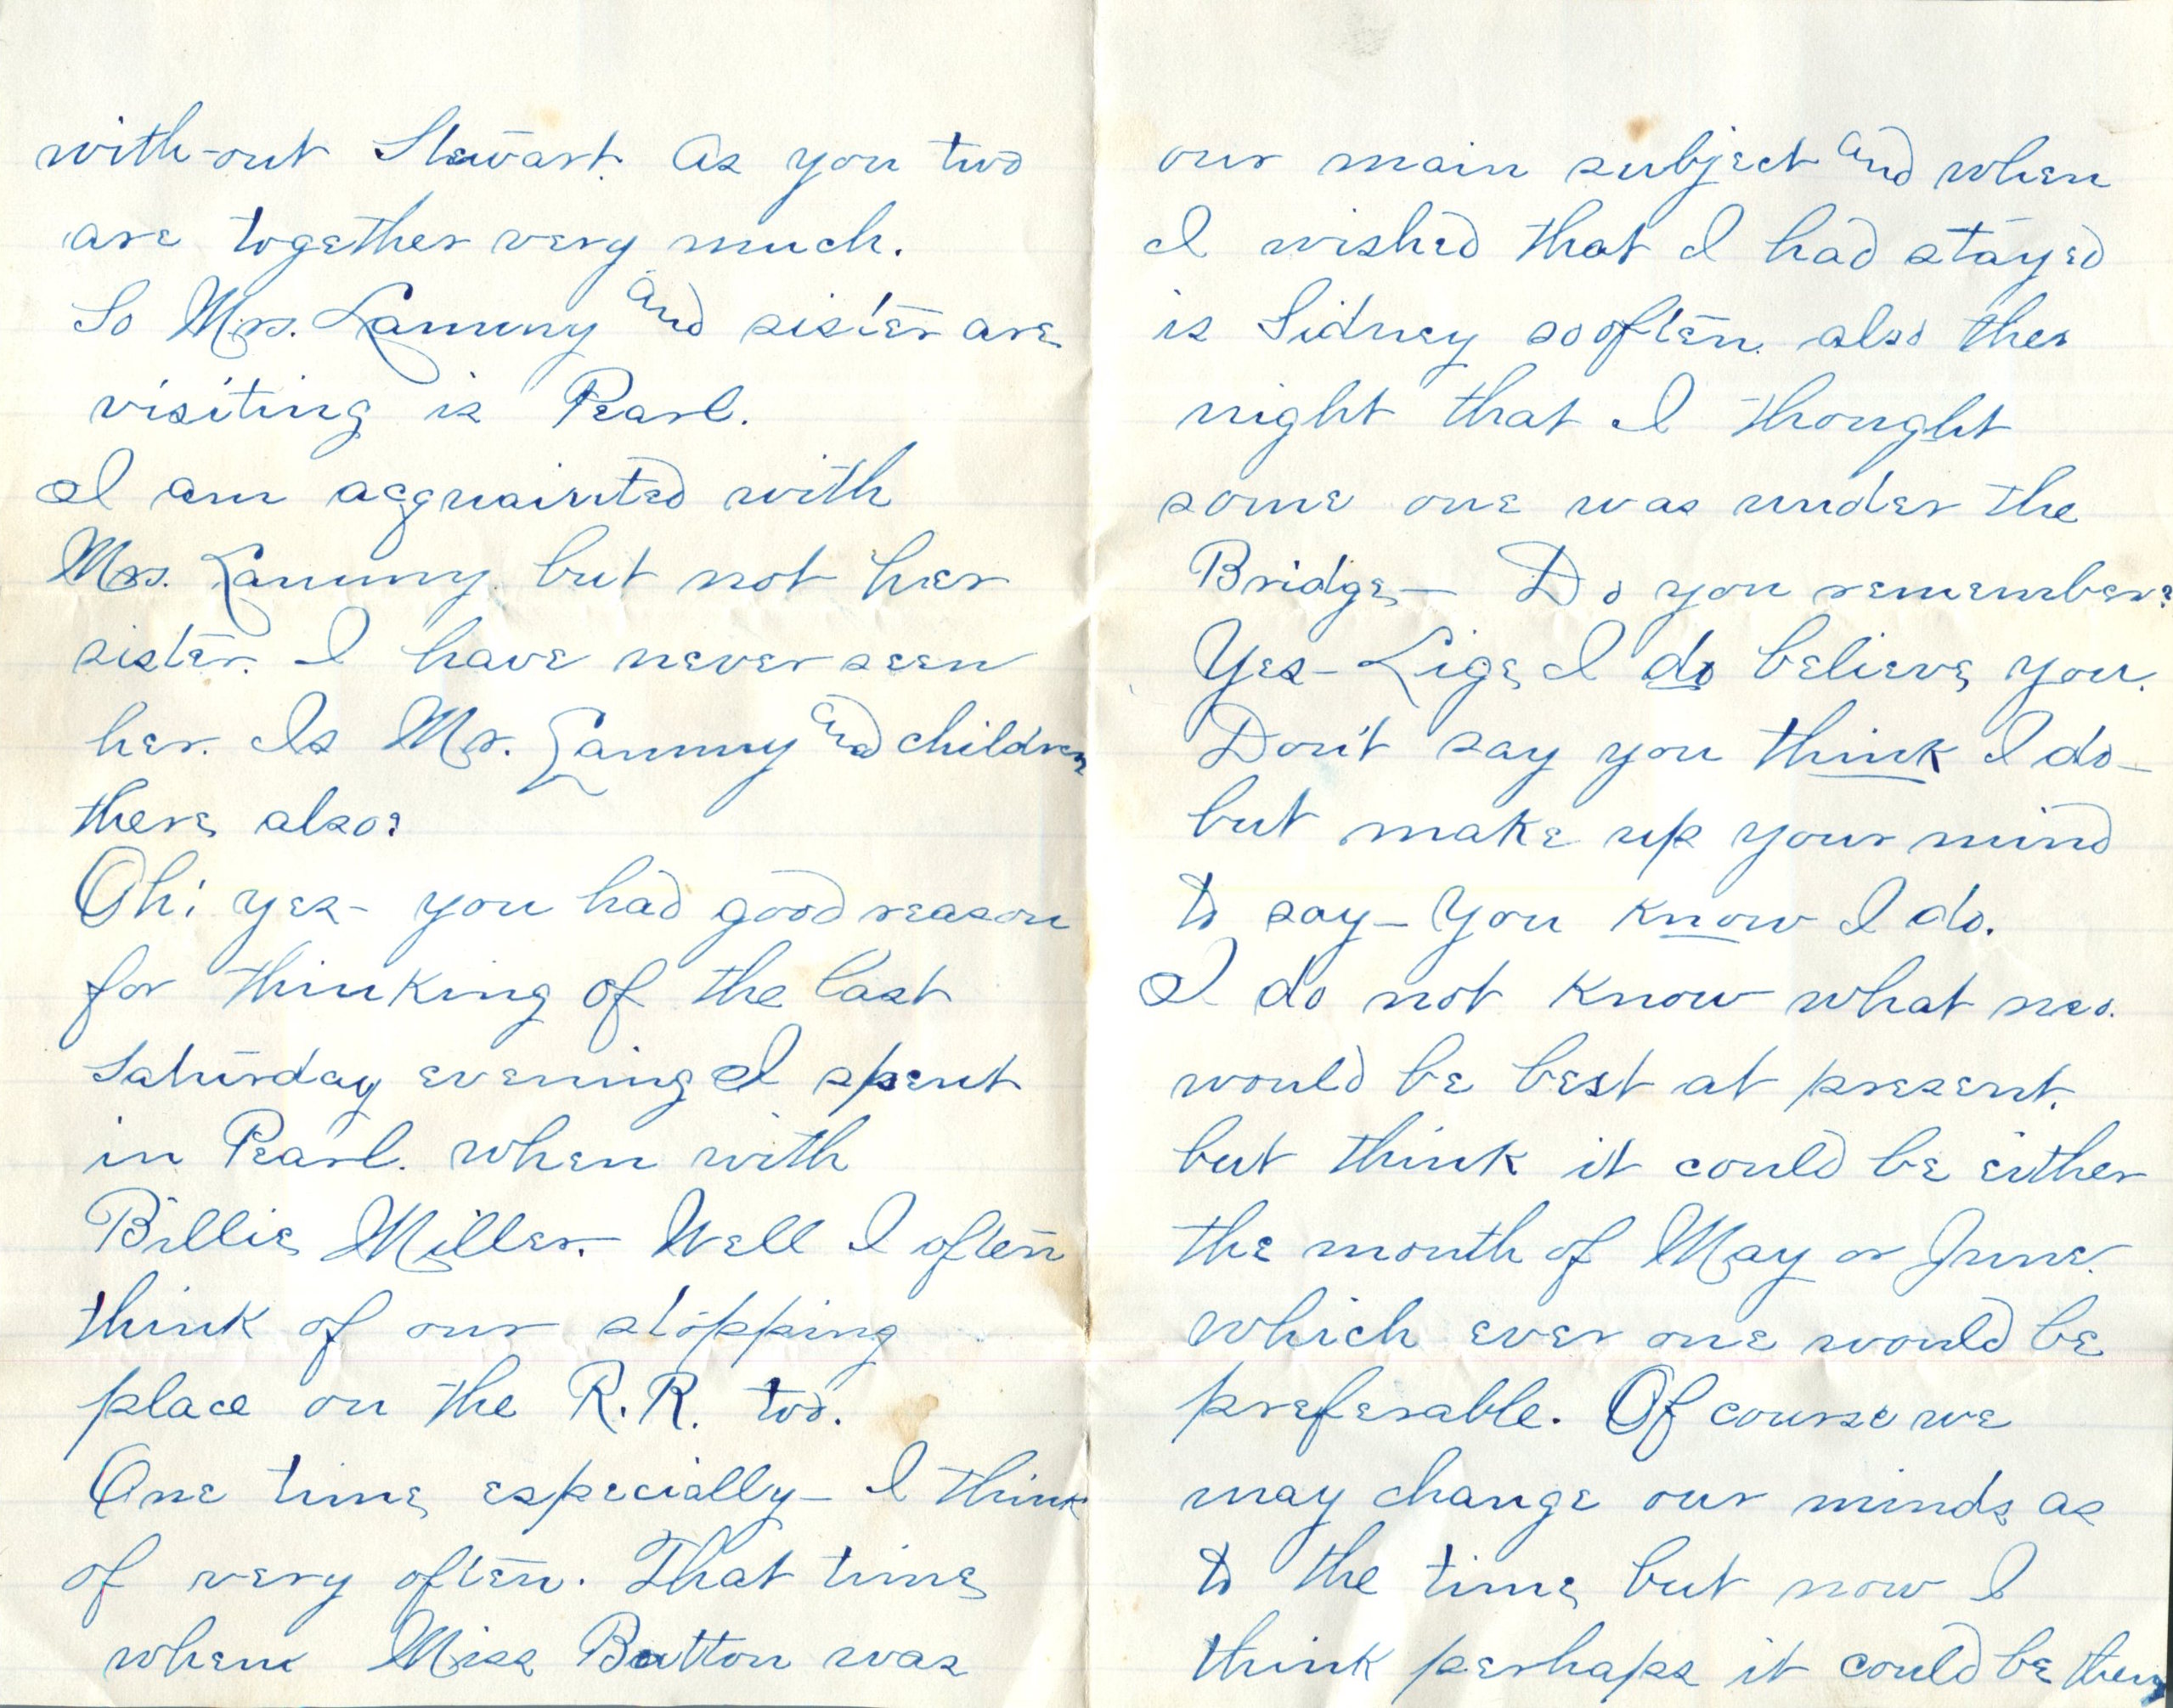 with-out Stewart. As you two
are together very much.
So Mrs. Lammy and sister are
visiting is Pearl.
I am acquainted with
Mrs. Lammy but not her
sister. I have never seen
her. Is Mr. Lammy and children
there also?
Oh! yes- you had good reason
for thinking of the last
Saturday evening I spent
in Pearl. when with
Billie Miller. Well I often
think of our stopping
place on the R.R. too.
One time especially- I think
of very often. That time
when Miss Button was
our main subject and when
I wished that I had stayed
is Sidney so often. also the
night that I thought
some one was under the
Bridge- Do you remember?
Yes- Lige I do believe you.
Don't say you think I do-
but make up your mind
to say- You know I do.
I do not know what mo.
would be best at present.
but think it could be either
the month of May or June.
which ever one would be
preferable. Of course we
may change our minds as
to the time but now I
think perhaps it could be then